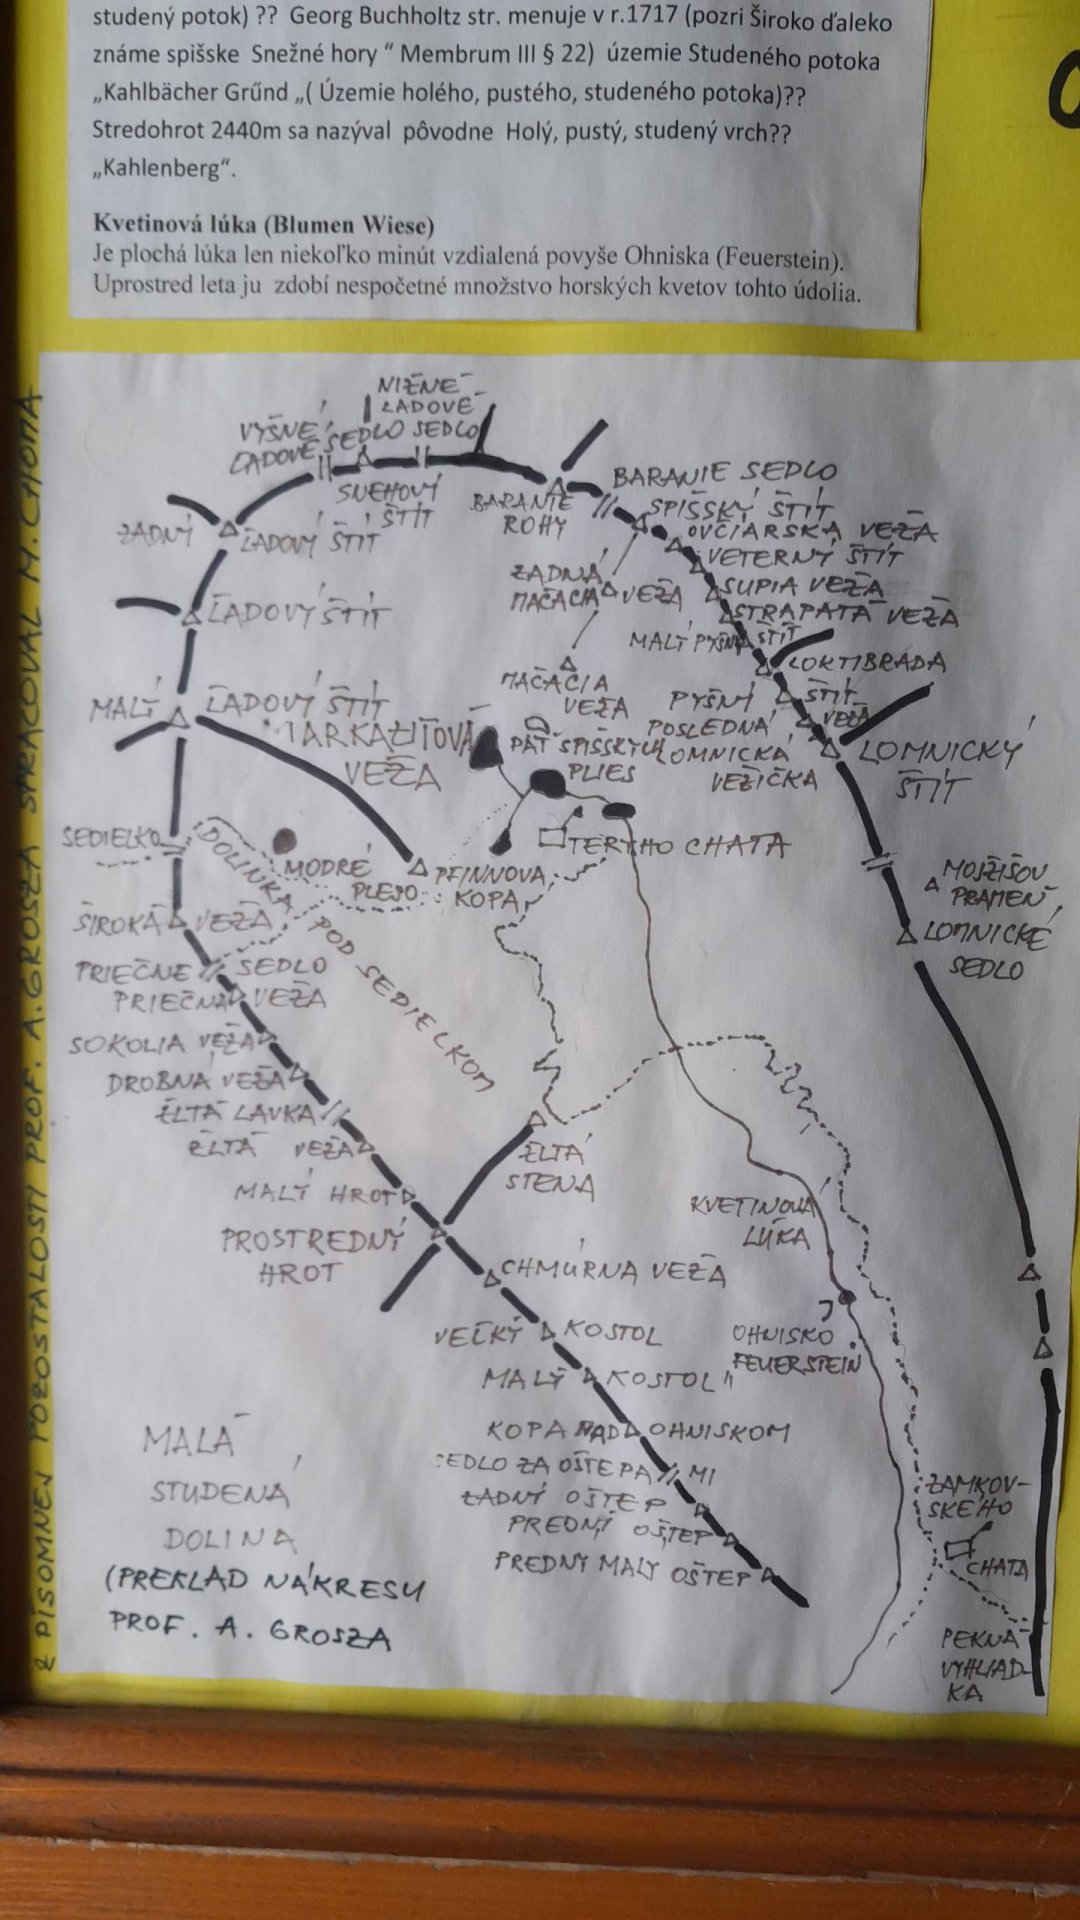 studený potok) ?? Georg Buchholtz str. menuje v r.1717 (pozri Široko ďaleko
známe spišske Snežné hory “ Membrum III § 22) územie Studeného potoka
„Kahlbächer Grűnd „( Územie holého, pustého, studeného potoka)??
Stredohrot 2440m sa nazýval pôvodne Holý, pustý, studený vrch??
„Kahlenberg“.
Kvetinová lúka (Blumen Wiese)
Je plochá lúka len niekoľko minút vzdialená povyše Ohniska (Feuerstein).
Uprostred leta ju zdobí nespočetné množstvo horských kvetov tohto údolia.
Z PÍSOMNEJ POZOSTALOSTI PROF. A. GROSZA SPRACOVAL M. CHOMA
NIŽNÉ
ĽADOVÉ
SEDLO
VYŠNÉ
ĽADOVÉ SEDLO
SNEHOVÝ
ŠTÍT
BARANIE
ROHY
BARANIE SEDLO
SPIŠSKÝ ŠTÍT
OVČIARSKA VEŽA
VETERNÝ ŠTÍT
SUPIA VEŽA
STRAPATÁ VEŽA
ZADNÝ ĽADOVÝ ŠTÍT
ZADNÁ
MAČACIA VEŽA
MALÝ PYŠNÝ ŠTÍT
LOKTIBRADA
ĽADOVÝ ŠTÍT
MAČAČIA
VEŽA
PYŠNÝ ŠTÍT
POSLEDNÁ VEŽA
LOMNICKÁ
VEŽIČKA
LOMNICKÝ
ŠTÍT
MALÝ ĽADOVÝ ŠTÍT
MARKAZITOVÁ
VEŽA
PÄŤ SPIŠSKÝCH
PLIES
TERYHO CHATA
SEDIELKO
DOLINKA POD SEDIELKOM
MODRÉ
PLESO
PFINNOVA
KOPA
MOJŽIŠOV
PRAMEŇ
LOMNICKÉ
SEDLO
ŠIROKÁ VEŽA
PRIEČNE SEDLO
PRIEČNA VEŽA
SOKOLIA VEŽA
DROBNÁ VEŽA
ŽLTÁ LAVKA
ŽLTÁ VEŽA
MALÝ HROT
PROSTREDNÝ
HROT
ŽLTÁ
STENA
KVETINOVÁ
LÚKA
CHMÚRNA VEŽA
VEĽKÝ KOSTOL
MALÝ KOSTOL
OHNISKO
FEUERSTEIN
KOPA NAD OHNISKOM
SEDLO ZA OŠTEPAMI
ZADNÝ OŠTEP
PREDNÝ OŠTEP
PREDNÝ MALÝ OŠTEP
ZAMKOV-
SKÉHO
CHATA
PEKNÁ
VYHLIAD-
KA
MALÁ
STUDENÁ
DOLINA
(PREKLAD NÁKRESU
PROF. A. GROSZA